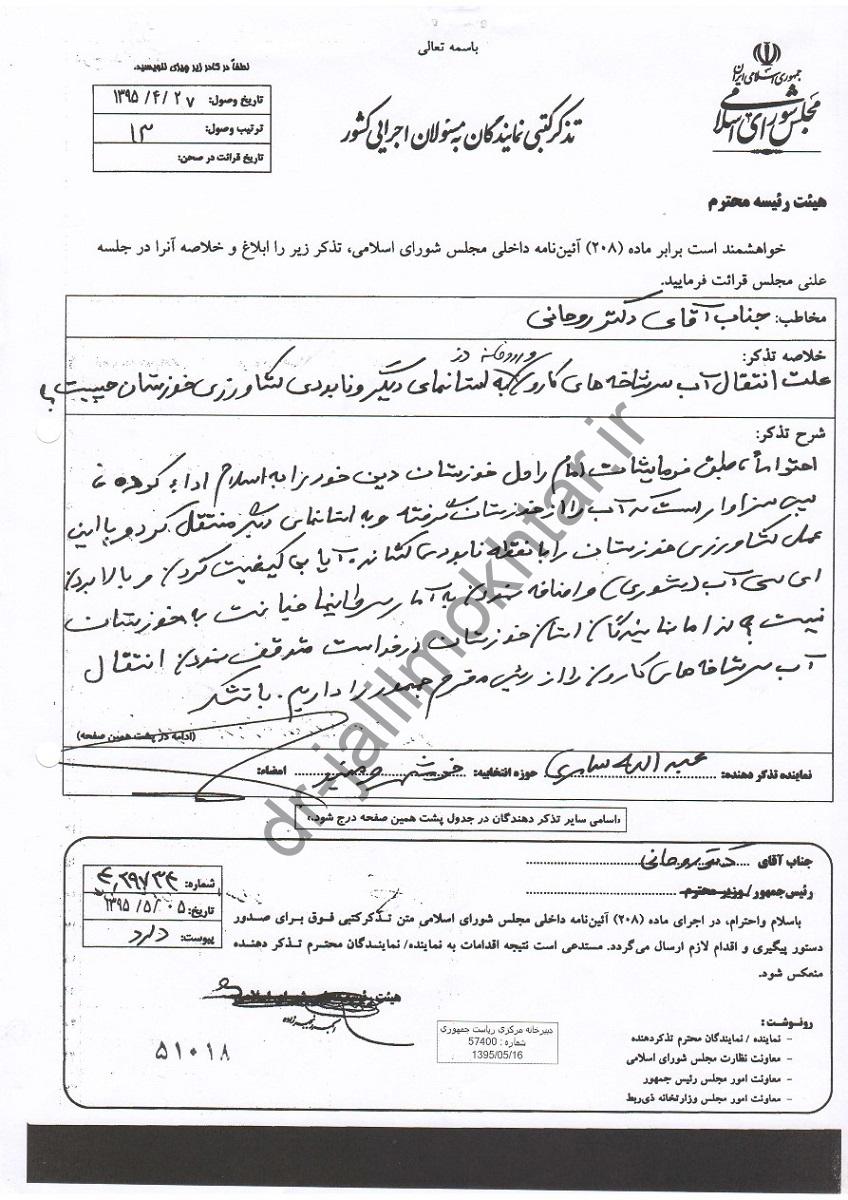 باسمه تعالی
جمهوری اسلامی ایران
مجلس شورای اسلامی
لطفاً در کادر زیر چیزی ننویسید.
تاریخ وصول: ۱۳۹۵/۴/۲۷
ترتیب وصول: ۱۳
تاریخ قرائت در صحن:
تذکر کتبی نمایندگان به مسئولان اجرایی کشور
هیئت رئیسه محترم
خواهشمند است برابر ماده (۲۰۸) آئین‌نامه داخلی مجلس شورای اسلامی، تذکر زیر را ابلاغ و خلاصه آنرا در جلسه
علنی مجلس قرائت فرمایید.
مخاطب: جناب آقای دکتر روحانی
خلاصه تذکر:
و رودخانه دز
علت انتقال آب سرشاخه های کارون به استانهای دیگر و نابودی کشاورزی خوزستان چیست؟
شرح تذکر:
احتراماً، طبق فرمایشات امام راحل خوزستان دین خود را به اسلام اداء کرده
سزاوار است که آب را از خوزستان گرفته و به استانهای دیگر منتقل کرد و با این
عمل کشاورزی خوزستان را با نقطه نابودی کشاند. آیا بی کیفیت کردن و بالا بردن
ای سی آب (شوری) و اضافه شدن به آمار خیانت به خوزستان
نیست؟ لذا ما نمایندگان استان خوزستان درخواست متوقف شدن انتقال
آب سرشاخه های کارون را از رئیس محترم جمهور را داریم. با تشکر
(ادامه در پشت همین صفحه)
نماینده تذکر دهنده: عبدالله سامری حوزه انتخابیه: خرمشهر امضاء:
«اسامی سایر تذکر دهندگان در جدول پشت همین صفحه درج شود.»
جناب آقای دکتر روحانی
رئیس‌جمهور / وزیر محترم
شماره: ۴۰۲۹۷۳۴
تاریخ: ۱۳۹۵/۵/۰۵
پیوست: دارد
باسلام واحترام، در اجرای ماده (۲۰۸) آئین‌نامه داخلی مجلس شورای اسلامی متن تذکرکتبی فوق برای صدور
دستور پیگیری و اقدام لازم ارسال می‌گردد. مستدعی است نتیجه اقدامات به نماینده/ نمایندگان محترم تذکر دهنده
منعکس شود.
رونوشت:
– نماینده / نمایندگان محترم تذکردهنده
– معاونت نظارت مجلس شورای اسلامی
– معاونت امور مجلس رئیس جمهور
– معاونت امور مجلس وزارتخانه ذی‌ربط
دبیرخانه مرکزی ریاست جمهوری
شماره : 57400
1395/05/16
۵۱۰۱۸
dr-jalilmokhtar.ir